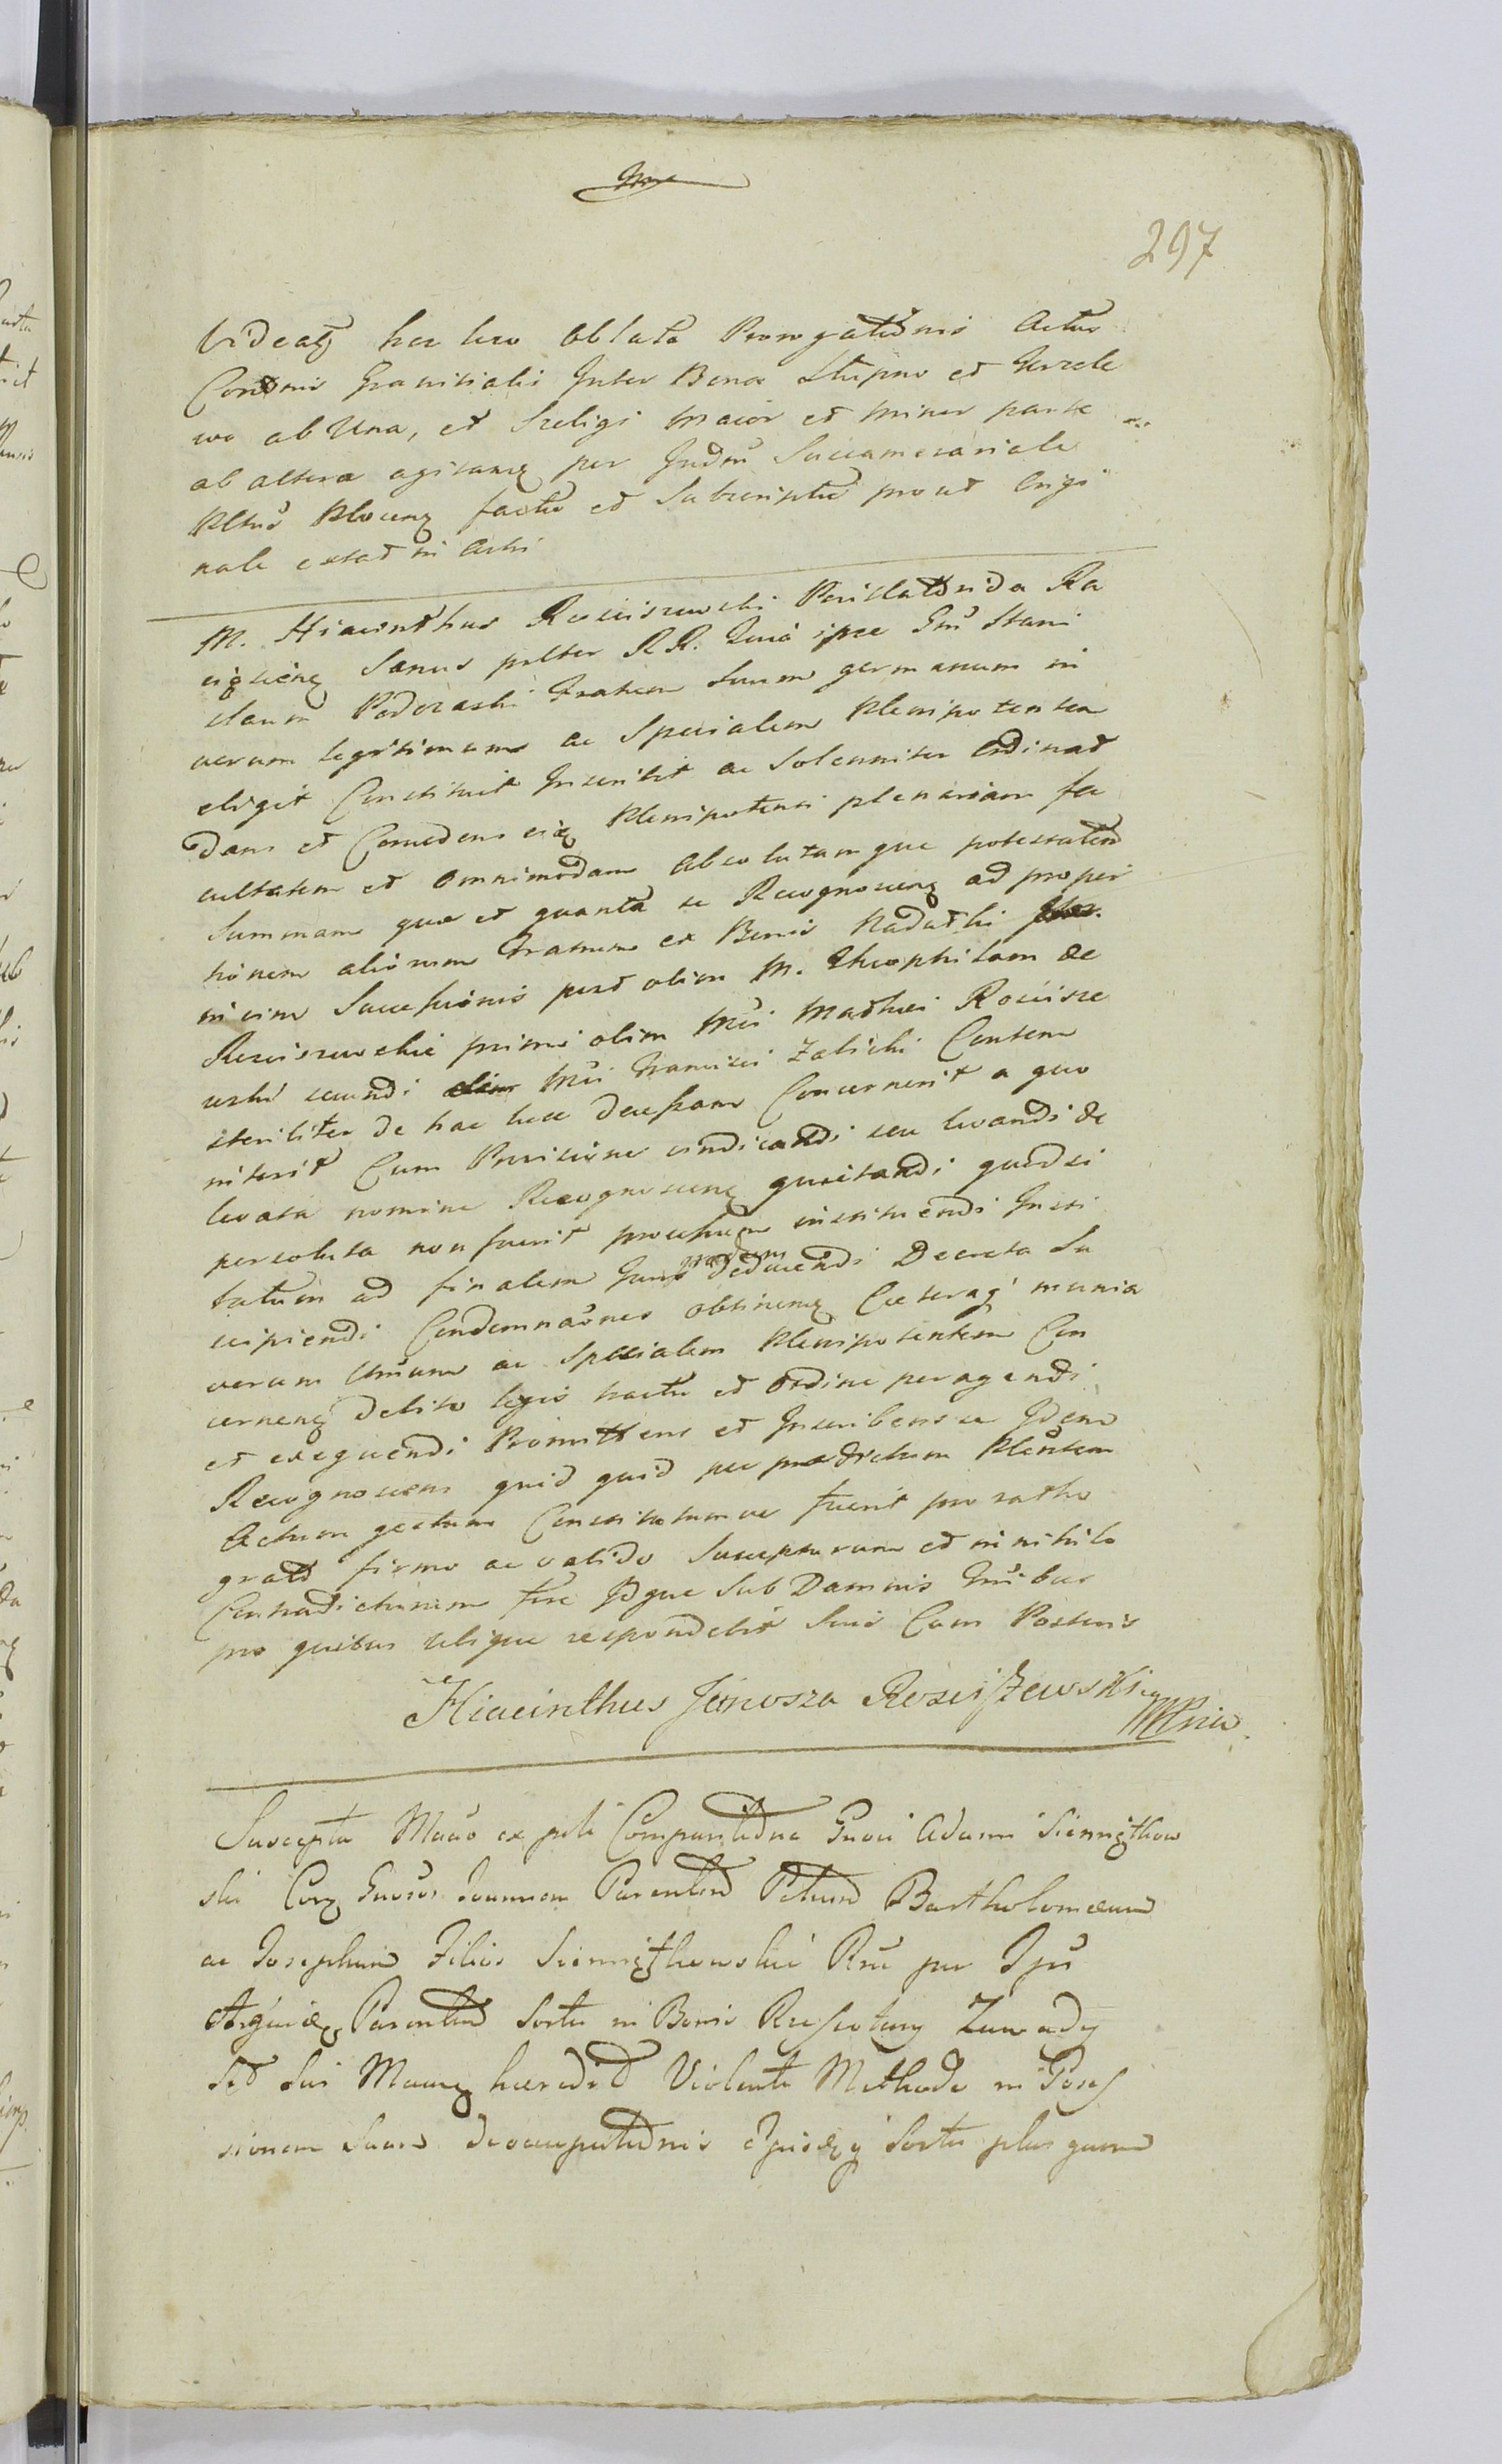 297
Videatꝫ hoc loco Oblata Prorogationis Actus
Condnis Granicialis Inter Bona Stupno et
wo ab Una, et Szeligi Maior et Minor parte
ab altera agitanꝫ per Judm Succamerariale
Pltus Plocenꝫ factu et Subscriptu prout Origi
nale extat in Actis
M. Hiacinthus Rosciszewski Ra
Sanus plter RR. Quia ipse Gm Stani
slaum Podczaski Fratrem Suum germanum in
verum legitimum ac Specialem Plenipotentem
eligit Constituit Inscribit ac Solenniter Ordinat
Dans et Concedens eidꝫ Plenipotenti plenariam fa
cultatem et Omnimodam Absolutamque potestatem
Summam qua et quanta se Recognoscenꝫ ad propor
tionem aliorum Fratrum ex Bonis
nicim Successionis post olim M. Theophilam de
Rosciszewskie primi olim Mci Mathei Roscisze
wski secundi olim Mci Francisci Zaliski Consem
steriliter de hac luce decessam Concernerit a quo
niterit Cum Provisione vindicandi seu levandi de
levata nomine Recognoscenꝫ quietandi quodsi
persoluta non fuerit processum instituendi Insti
tutum ad finalem Juris gradum deducendi Decreta Su
scipiendi Condemnaones obtinenꝫ Caeteraqꝫ munia
verum Umum ac Specialem Plenipotentem Con
cernenꝫ debito legis tractu et Ordine peragendi
et exequendi Promittens et Inscribens se Idem
Recognoscens quid quid per praedictum Plentem
Actum gestum Constitutumve fuerit pro ratho
grato firmo ac valido Suscepturum et in nihilo
Contradicturum fore Idque Sub Damnis
pro quibus ubique respondebit Suis Cum Posteris
Hiacinthus Junosza Rosciszewski
Mpria
Suscepta Mauo ex pcti Comparitione Gnosi Adami Siennigthow
ski Corꝫ Gnosos Joannem Parentem Petrum Bartholomaeum
ac Josephum Filios Siennigthowskie Rne per Ipu
Parentem Sortis in Bonis Zawady
Sed Sui Manenꝫ haeredit Violenta Methodo in Posses
sionem Suam deoccupationis Ipsiusqꝫ Sortis plus quam